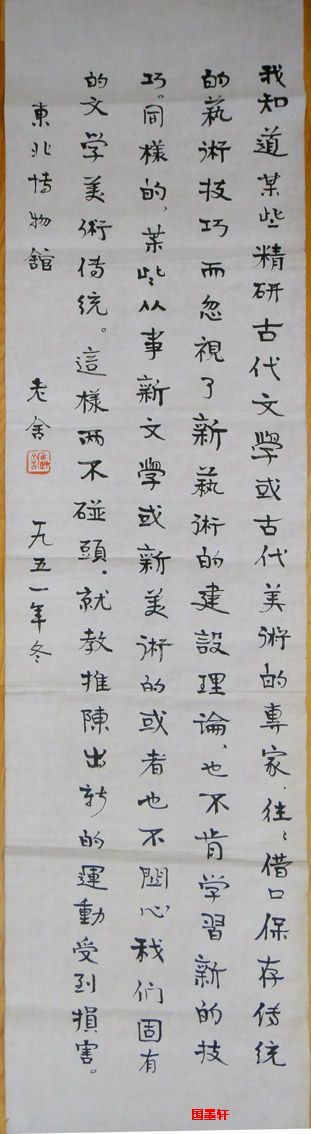 我知道某些精研古代文學或古代美術的專家，往々借口保存传统
的藝術技巧而忽視了新藝術的建設理論，也不肯学習新的技
巧。同樣的，某些从事新文學或新美術的或者也不関心我们固有
的文学美術传统。這樣两不碰頭，就教推陳出新的運動受到損害。
東北博物館 老舍 一九五一年冬
国墨轩